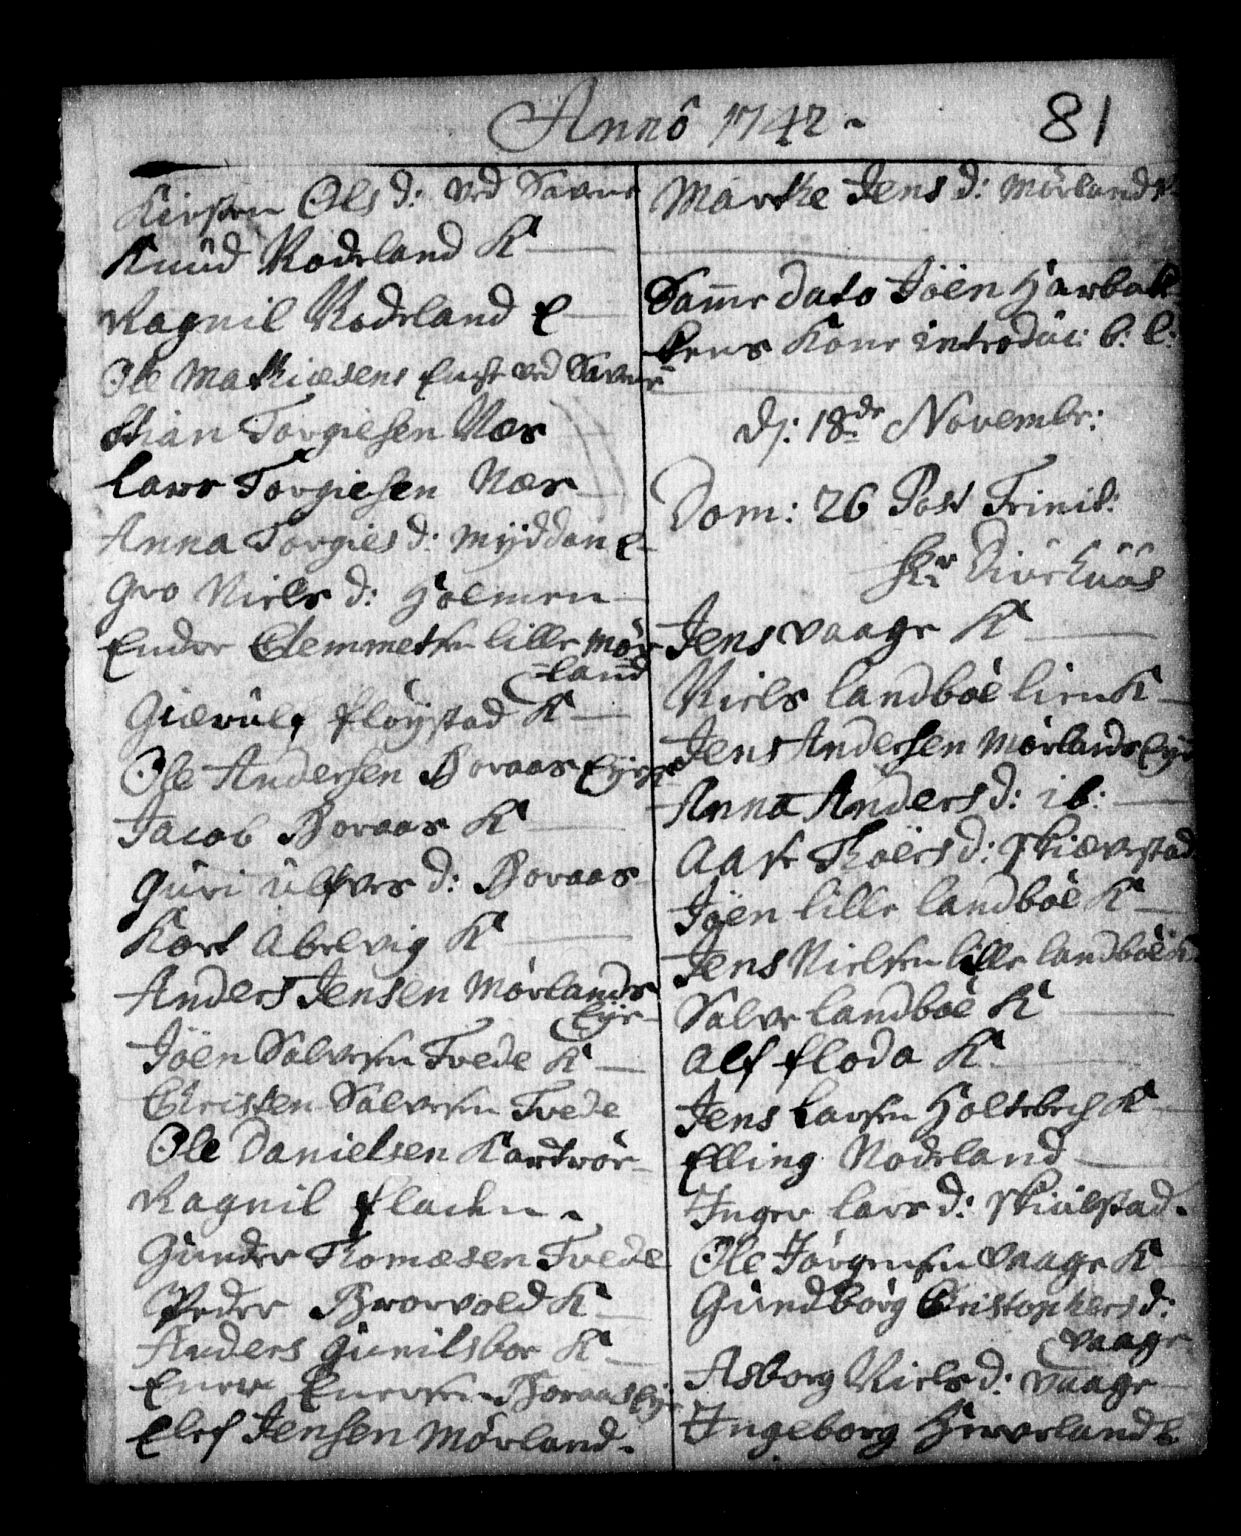 Anno 1742
81
Kirsten Ols d: ved Savne
Knud Rodeland K
Ragnil Rodeland E
Ole Mathiæsens Enst ved Savne
Stian Torgiesen Næs
Lars Torgiesen Næs
Anna Torgies d: Myddan E
Gro Niels d: Holmen
Ender Clemmetsen lille Mør
=land
Giærulf Fløystad K
Ole Andersen Boraas Eye
Jacob Boraas K
Guri Ulfves d: Boraas
Kort Abelvig K
Anders Jensen Mørlands
Eye
Jöen Salvesen Tvede K
Christen Salvesen Tvede
Ole Danielsen
Ragnil Flachen
Gunder Thomæsen Tvede
Peder Brorvold K
Anders Gunilsboe K
Ener Enersen Boraas Ey
Elef Jensen Mørland
Marthe Jens d: Mørland
Samme dato Jöen Harbak
kens Kone introduc: b: l:
dj: 18de Novembr:
Dom: 26 Post Trinit:
Hr
Jens Vaage K
Niels Landböe lien K
Jens Andersen Mørlands Eye
Anna Anders d: ib:
Aase Thoers d: Skiævestad
Jöen lille Landböe K
Jens Nielsen lille Landböe K
Salve Landböe K
Alf Floda K
Jens Larsen Holtebech K
Elling Rodeland
Inger Lars d: Skiulstad
Ole Jörgensen Vaage K
Gundborg Christophers d:
Vaage
Asborg Niels d: Vaage
Ingeborg Herverland E